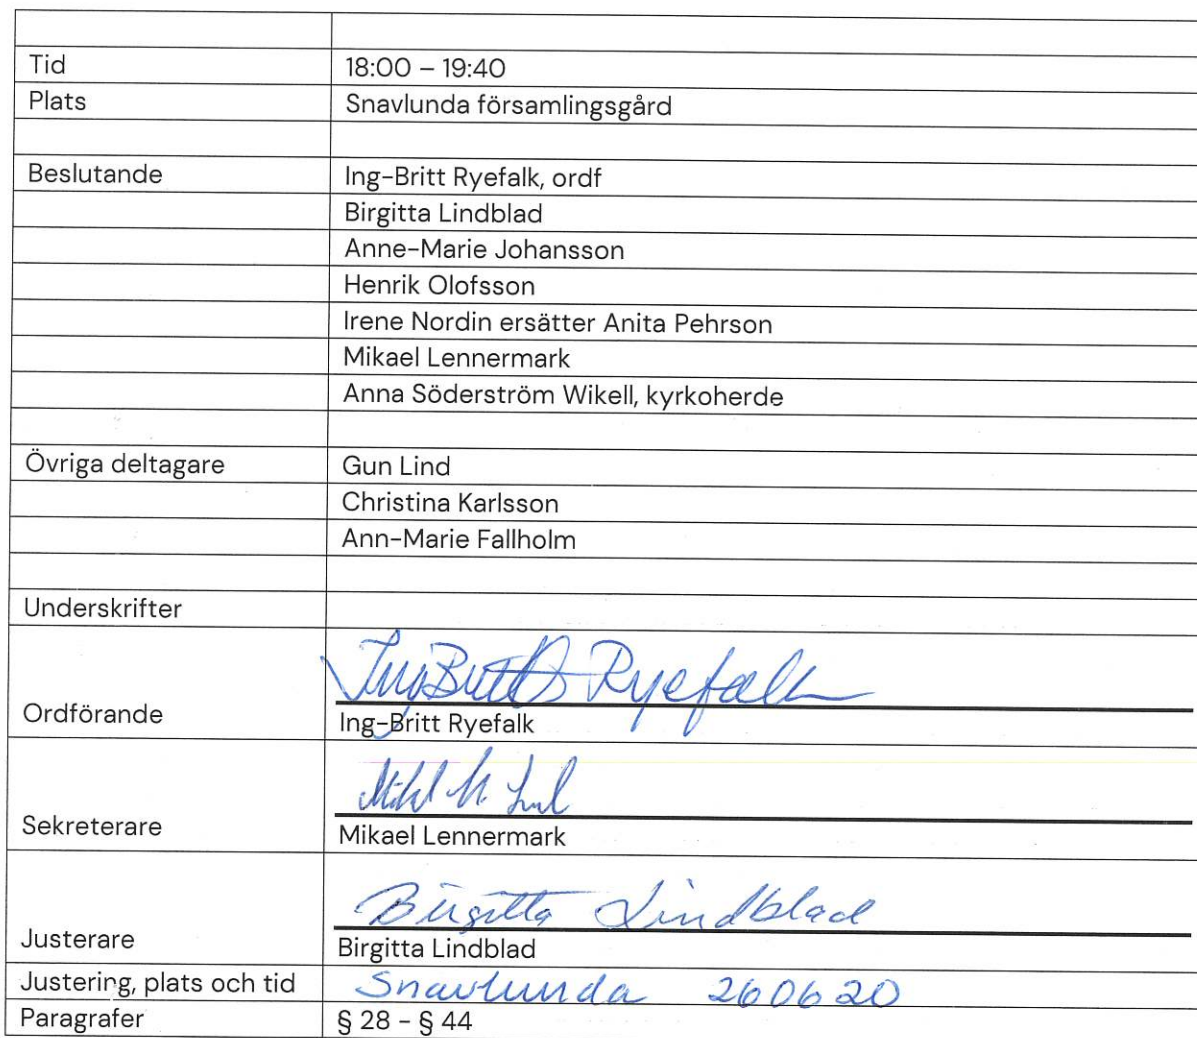 Tid 18:00 – 19:40
Plats Snavlunda församlingsgård
Beslutande Ing-Britt Ryefalk, ordf
Birgitta Lindblad
Anne-Marie Johansson
Henrik Olofsson
Irene Nordin ersätter Anita Pehrson
Mikael Lennermark
Anna Söderström Wikell, kyrkoherde
Övriga deltagare Gun Lind
Christina Karlsson
Ann-Marie Fallholm
Underskrifter
IngBritt Ryefalk
Ordförande Ing-Britt Ryefalk
Sekreterare Mikael Lennermark
Birgitta Lindblad
Justerare Birgitta Lindblad
Justering, plats och tid Snavlunda 260620
Paragrafer § 28 - § 44